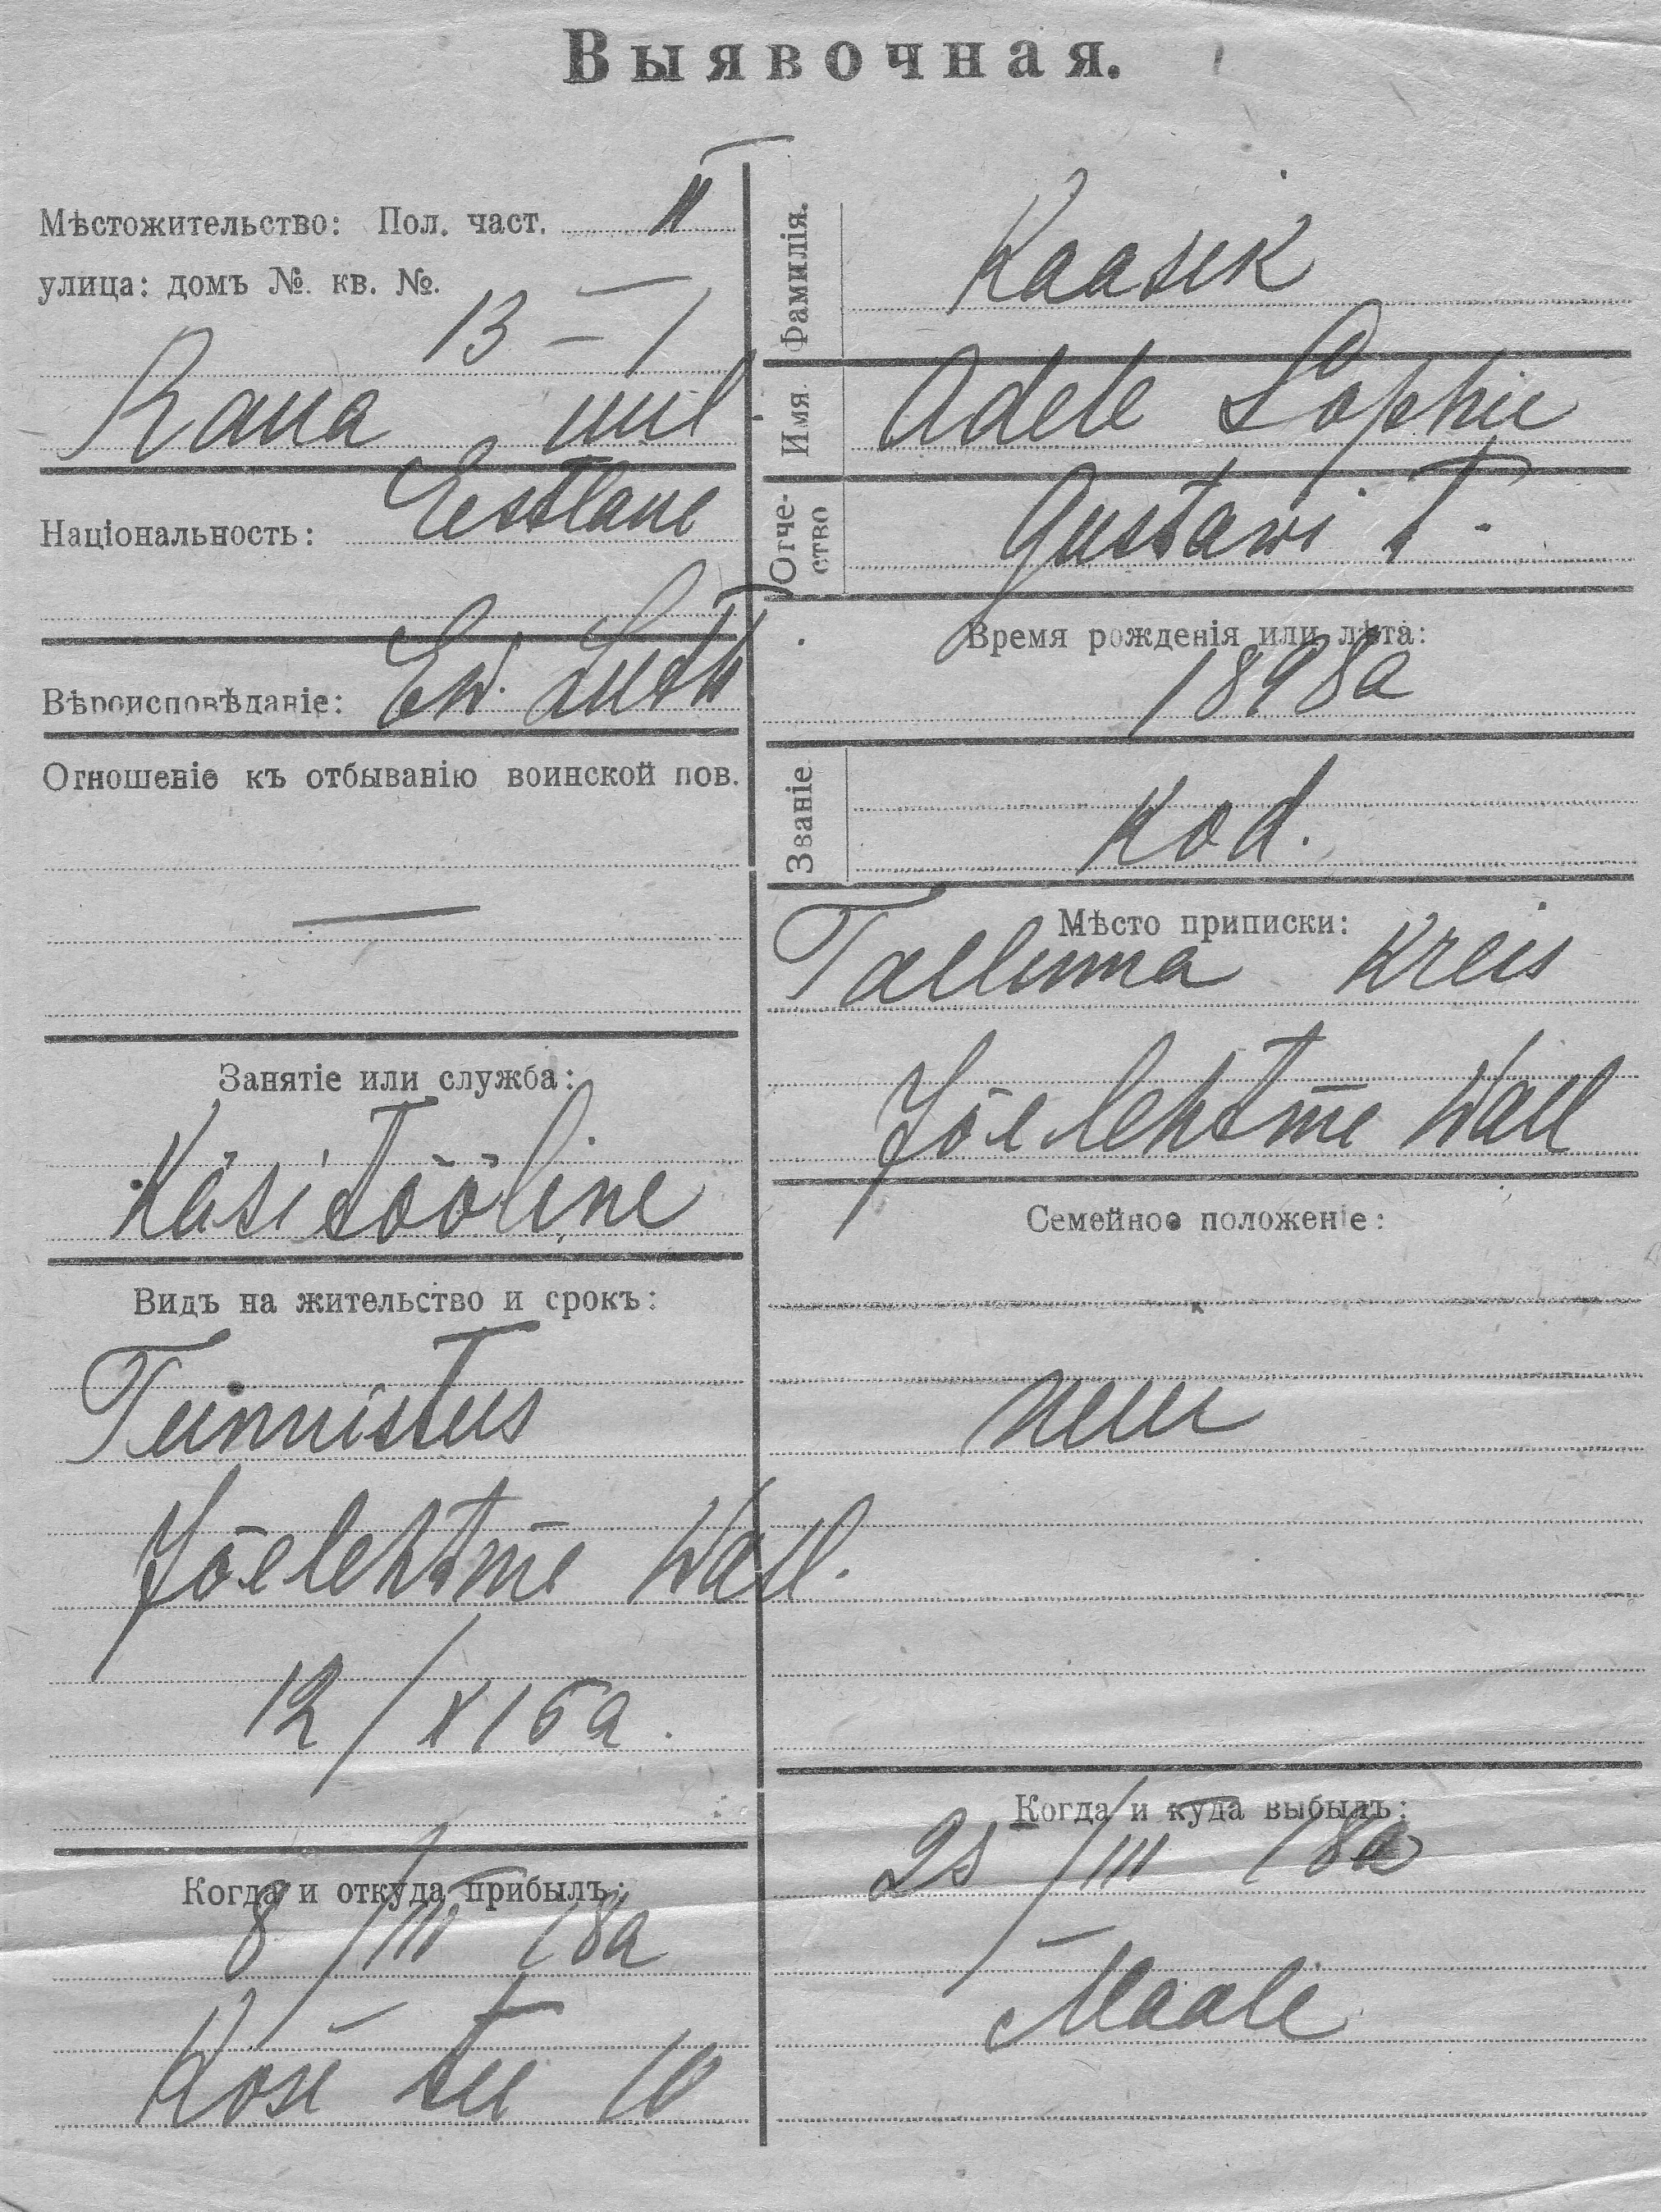 Выявочная.
Мѣстожительство: Пол. част. II
улица: домъ №. кв. №.
13 – 1
Raua uul
Національность: Eestlane
Вѣроисповѣданіе: Ew. Luth
Отношеніе къ отбыванію воинской пов.
—
Занятіе или служба:
Käsitööline
Видъ на жительство и срокъ:
Tunnistus
Jõelehtme Wall.
12/X 16 a.
Когда и откуда прибылъ:
8/III 18a
Kose tee 10
Фамилія.
Kaasik
Имя.
Adele Sophie
Отче-
ство
Gustawi T.
Время рожденія или лѣта:
1898a
Званіе
Kod.
Мѣсто приписки:
Tallinna Kreis
Jõelehtme Wall
Семейное положеніе:
neiu
Когда и куда выбылъ:
25/III 18a
Maale